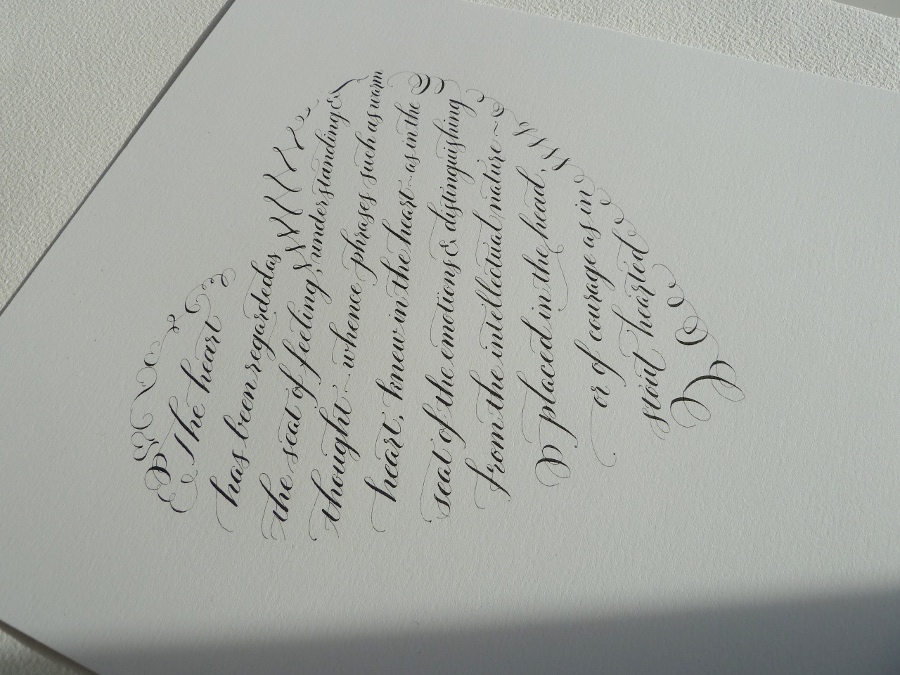 The heart
has been regarded as
the seat of feeling, understanding &
thought ~ whence phrases such as warm
heart, knew in the heart ~ as in the
seat of the emotions & distinguishing
from the intellectual nature ~
placed in the head,
or of courage as in
stout hearted